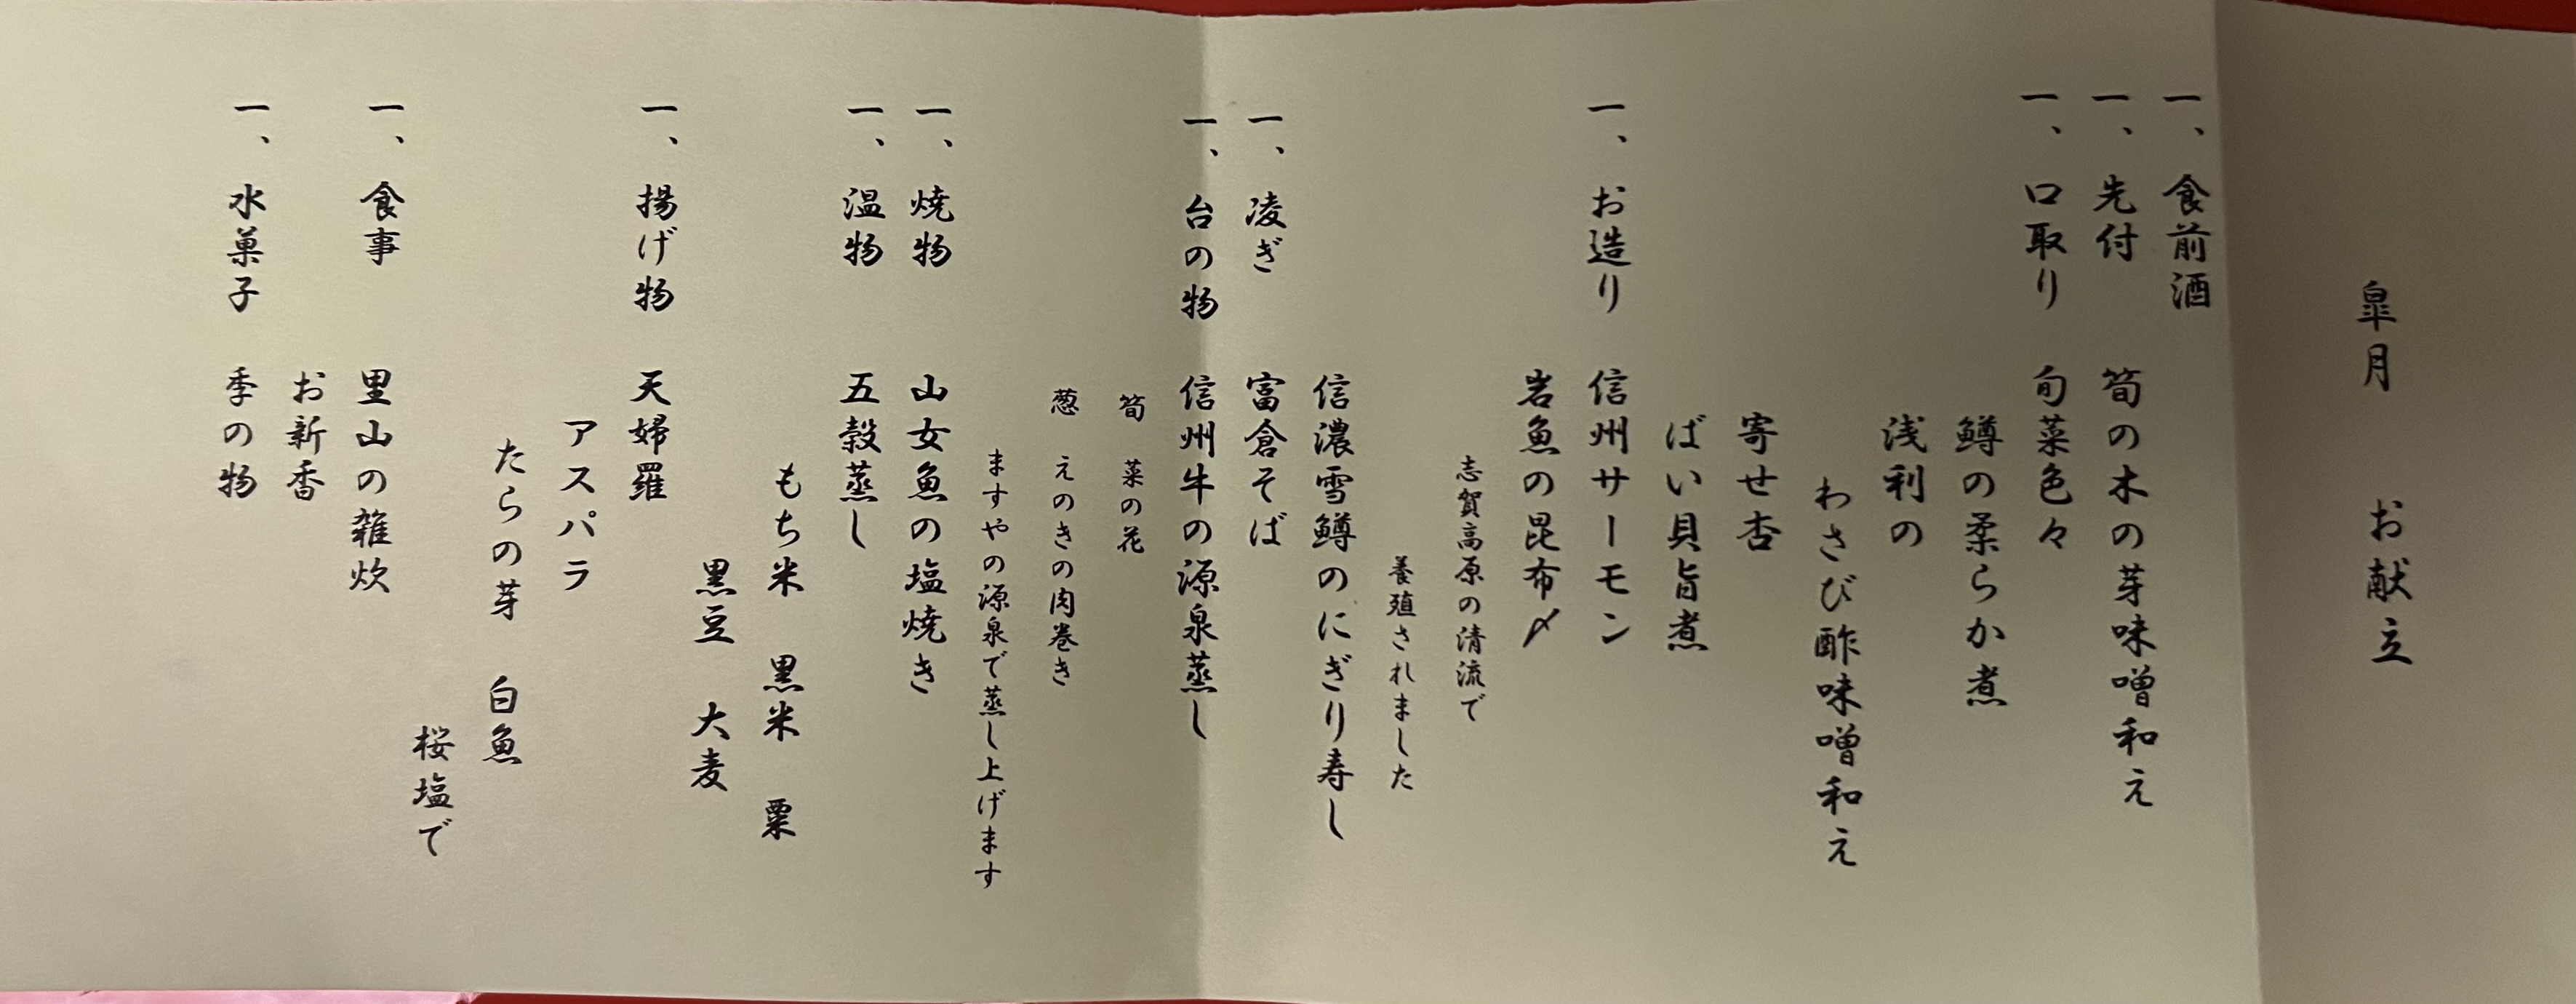 皐月　お献立
一、食前酒
一、先付　筍の木の芽味噌和え
一、口取り　旬菜色々
鱒の柔らか煮
浅利の
わさび酢味噌和え
寄せ杏
ばい貝旨煮
一、お造り　信州サーモン
岩魚の昆布〆
志賀高原の清流で
養殖されました
信濃雪鱒のにぎり寿し
一、凌ぎ　富倉そば
一、台の物　信州牛の源泉蒸し
筍　菜の花
葱　えのきの肉巻き
ますやの源泉で蒸し上げます
一、焼物　山女魚の塩焼き
一、温物　五穀蒸し
もち米　黒米　粟
黒豆　大麦
一、揚げ物　天婦羅
アスパラ
たらの芽　白魚
桜塩で
一、食事　里山の雑炊
お新香
一、水菓子　季の物